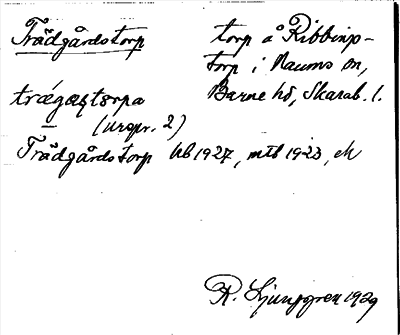 Trädgårdstorp
torp å Ribbings-
torp i Naums sn,
Barne hd, Skarab. l.
trágastorpa
(urspr. 2)
Trädgårdstorp kb 1927, mtb 1923, ek
R. Ljunggren 1929